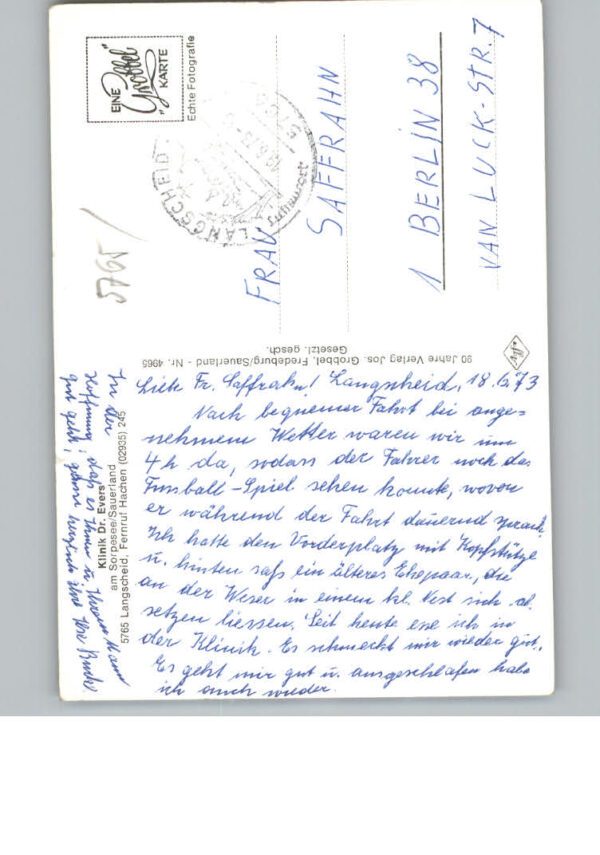 EINE
"Grobbel"
KARTE
Echte Fotografie
LANGSCHEID
5765
FRAU
SAFFRAHN
1 BERLIN 38
VAN LUCK-STR. 7
90 Jahre Verlag Jos. Grobbel, Fredeburg/Sauerland - Nr. 4965
Gesetzl. gesch.
Agfa
Klinik Dr. Evers
am Sorpesee/Sauerland
5765 Langscheid, Fernruf Hachen (02935) 245
Liebe Fr. Saffrahn! Langscheid, 18.6.73
Nach bequemer Fahrt bei ange-
nehmem Wetter waren wir um
4 h da, sodass der Fahrer noch das
Fussball-Spiel sehen konnte, wovon
er während der Fahrt dauernd sprach.
Ich hatte den Vorderplatz mit Kopfstütze
u. hinten saß ein älteres Ehepaar, die
an der Weser in einem kl. Nest sich ab-
setzen liessen. Seit heute esse ich in
der Klinik. Es schmeckt mir wieder gut.
Es geht mir gut u. ausgeschlafen habe
ich auch wieder.
In der
Hoffnung, daß es Ihnen u. Ihrem Mann
gut geht, grüsst herzlich Ihre